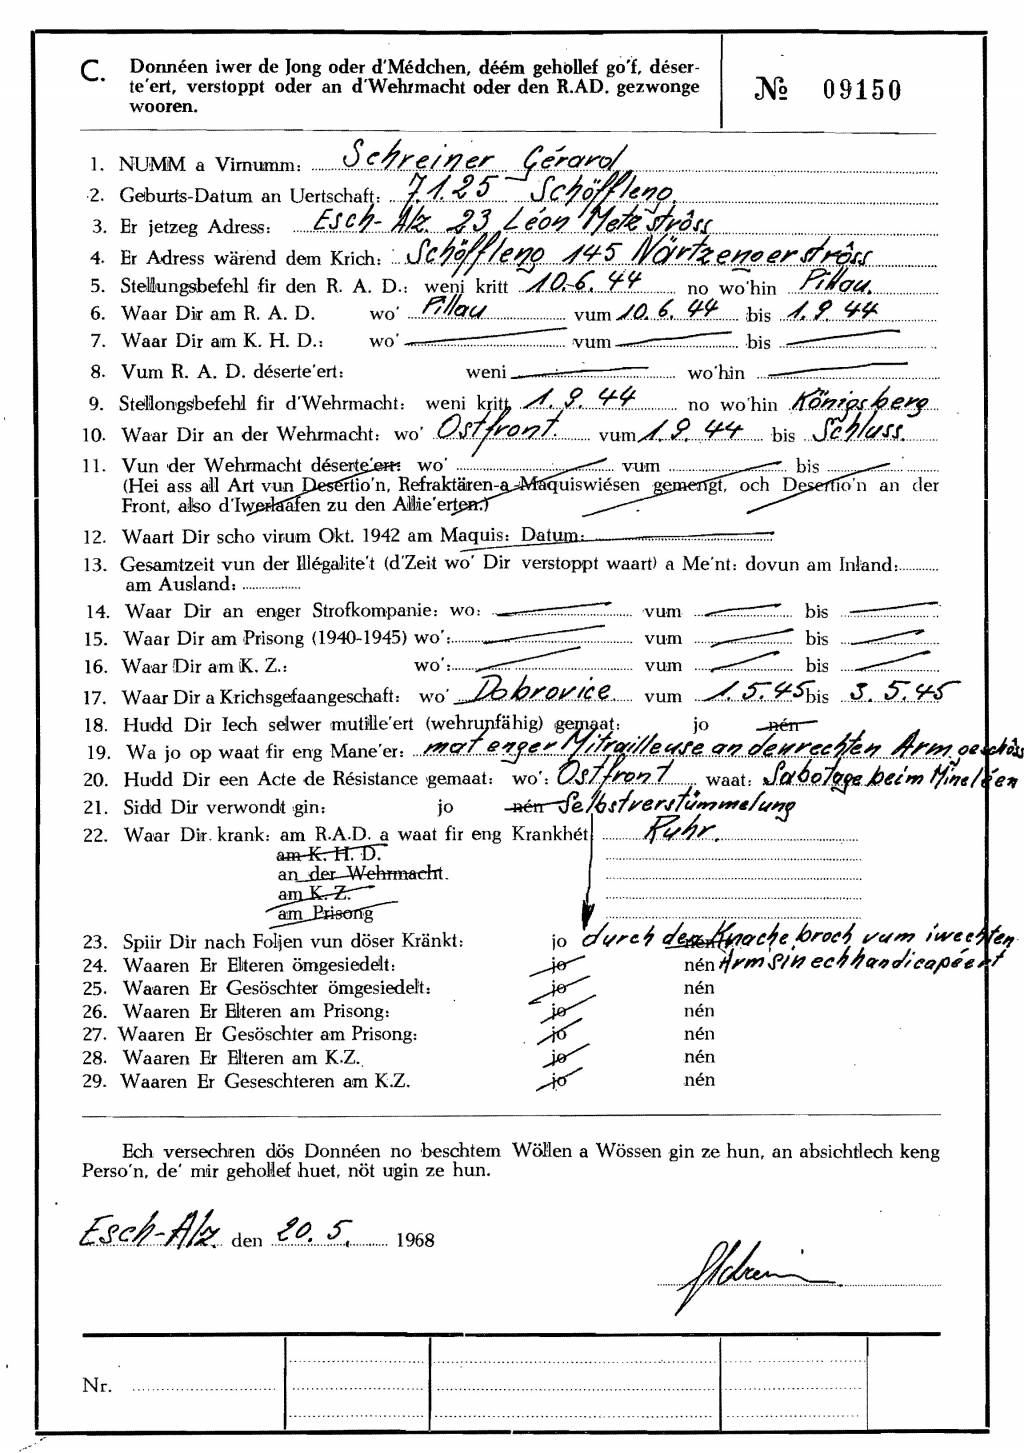 C. Donnéen iwer de Jong oder d'Médchen, déém gehollef go'f, déser-
te'ert, verstoppt oder an d'Wehrmacht oder den R.AD. gezwonge
wooren.
№ 09150
1. NUMM a Virnumm: Schreiner Gérard
2. Geburts-Datum an Uertschaft: 7.1.25 Schöffleng
3. Er jetzeg Adress: Esch-Alz. 23 Léon Metz strôss
4. Er Adress wärend dem Krich: Schöffleng 145 Nörtzengerströss
5. Stellungsbefehl fir den R. A. D.: weni kritt 10.6.44 no wo'hin Pillau.
6. Waar Dir am R. A. D. wo' Pillau vum 10.6.44 bis 1.9.44
7. Waar Dir am K. H. D.: wo' vum bis
8. Vum R. A. D. déserte'ert: weni wo'hin
9. Stellongsbefehl fir d'Wehrmacht: weni kritt 1.9.44 no wo'hin Königsberg
10. Waar Dir an der Wehrmacht: wo' Ostfront. vum 1.9.44 bis Schluss.
11. Vun der Wehrmacht déserte'ert: wo' vum bis
(Hei ass all Art vun Desertio'n, Refraktären-a Maquiswiésen gemengt, och Desertio'n an der
Front, also d'Iwerlaafen zu den Allie'erten.)
12. Waart Dir scho virum Okt. 1942 am Maquis: Datum:
13. Gesamtzeit vun der Illégalite't (d'Zeit wo' Dir verstoppt waart) a Me'nt: dovun am Inland:
am Ausland:
14. Waar Dir an enger Strofkompanie: wo: vum bis
15. Waar Dir am Prisong (1940-1945) wo': vum bis
16. Waar Dir am K. Z.: wo': vum bis
17. Waar Dir a Krichsgefaangeschaft: wo' Dobrovice vum 1.5.45 bis 3.5.45
18. Hudd Dir Iech selwer mutille'ert (wehrunfähig) gemaat: jo nén
19. Wa jo op waat fir eng Mane'er: mat enger Mitrailleuse an den rechten Arm geschöss
20. Hudd Dir een Acte de Résistance gemaat: wo': Ostfront waat: Sabotage beim Mineléen
21. Sidd Dir verwondt gin: jo nén Selbstverstümmelung
22. Waar Dir krank: am R.A.D. a waat fir eng Krankhét Ruhr.
am K. H. D.
an der Wehrmacht.
am K. Z.
am Prisong
23. Spiir Dir nach Foljen vun döser Kränkt: jo nén durch den Knachebroch vum iwechten
24. Waaren Er Elteren ömgesiedelt: jo nén Arm sin ech handicapéert
25. Waaren Er Gesöschter ömgesiedelt: jo nén
26. Waaren Er Elteren am Prisong: jo nén
27. Waaren Er Gesöschter am Prisong: jo nén
28. Waaren Er Elteren am K.Z. jo nén
29. Waaren Er Geseschteren am K.Z. jo nén
Ech versechren dös Donnéen no beschtem Wöllen a Wössen gin ze hun, an absichtlech keng
Perso'n, de' mir gehollef huet, nöt ugin ze hun.
Esch-Alz. den 20.5. 1968
Nr.